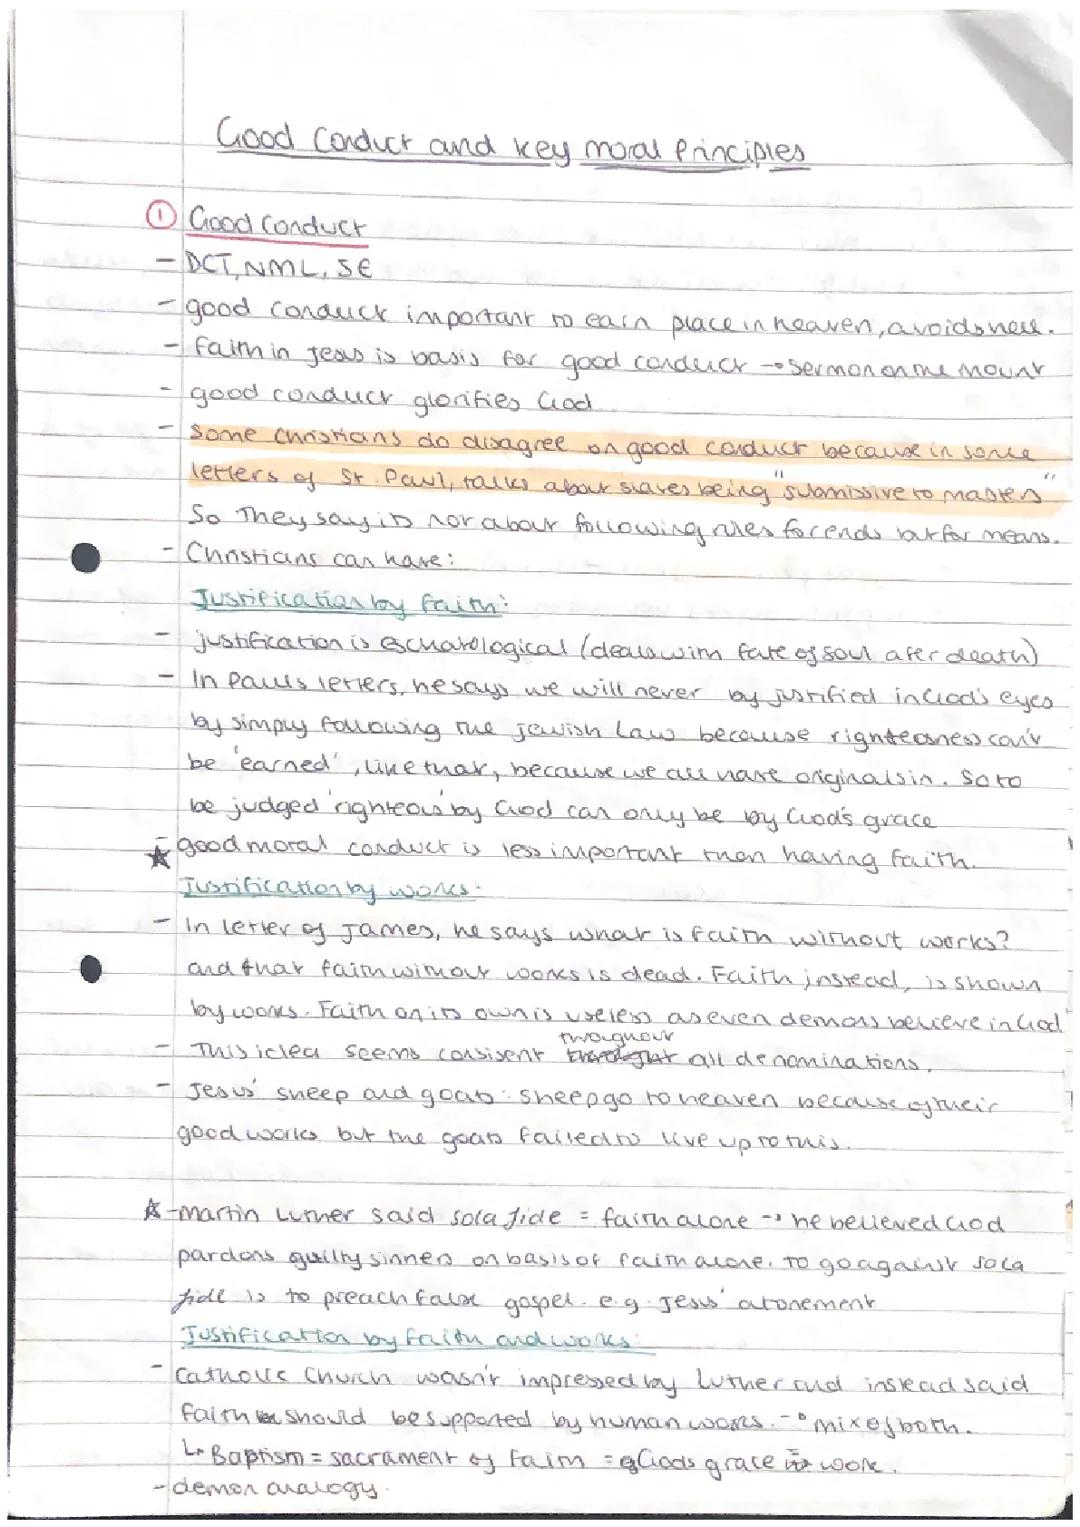 Good Conduct and key moral Principles
① Good Conduct
- DCT, NML, SE
- good conduct important to earn place in heaven, avoids hell.
- faith in Jesus is basis for good conduct → Sermon on the Mount
- good conduct glorifies God
- Some Christians do disagree on good conduct because in some
letters of St. Paul, talks about slaves being "submissive to masters"
So They say its not about following rules for ends but for means.
- Christians can have:
Justification by faith:
- justification is eschatological (deals with fate of soul after death)
- In Pauls letters, he says we will never by justified in God's eyes
by simply following the jewish Law because righteosness can't
be 'earned', like that, because we all have original sin. So to
be judged 'righteous' by God can only be by God's grace
☆ - good moral conduct is less important than having faith.
Justification by works:
- In letter of James, he says what is faith without works?
and that faith without works is dead. Faith instead, is shown
by works. Faith on its own is useless as even demons believe in God
- This idea seems consisent throughout all denominations.
- Jesus' sheep and goats: sheep go to heaven because of their
good works but the goats failed to live up to this.
☆ - martin Luther said sola fide = faith alone → he believed God
pardons guilty sinners on basis of faith alone. To go against sola
fide is to preach false gospel. e.g. Jesus' atonement
Justification by faith and works:
- Catholic Church wasn't impressed by Luther and instead said
faith should be supported by human works. → mix of both.
↳ Baptism = sacrament of faith = Gods grace work.
- demon analogy.